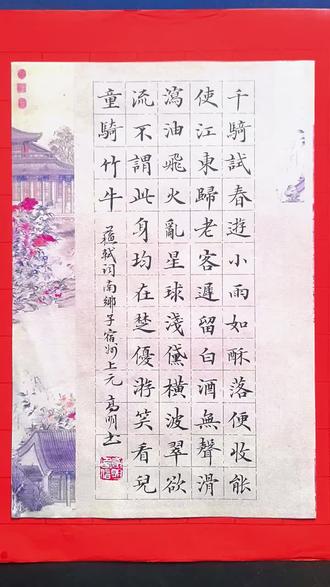 千騎試春遊小雨如酥落便收能
使江東歸老客遲留白酒無聲滑
瀉油飛火亂星球淺黛橫波翠欲
流不謂此身均在楚優游笑看兒
童騎竹牛
蘓軾詞南鄉子宿州上元 高明书